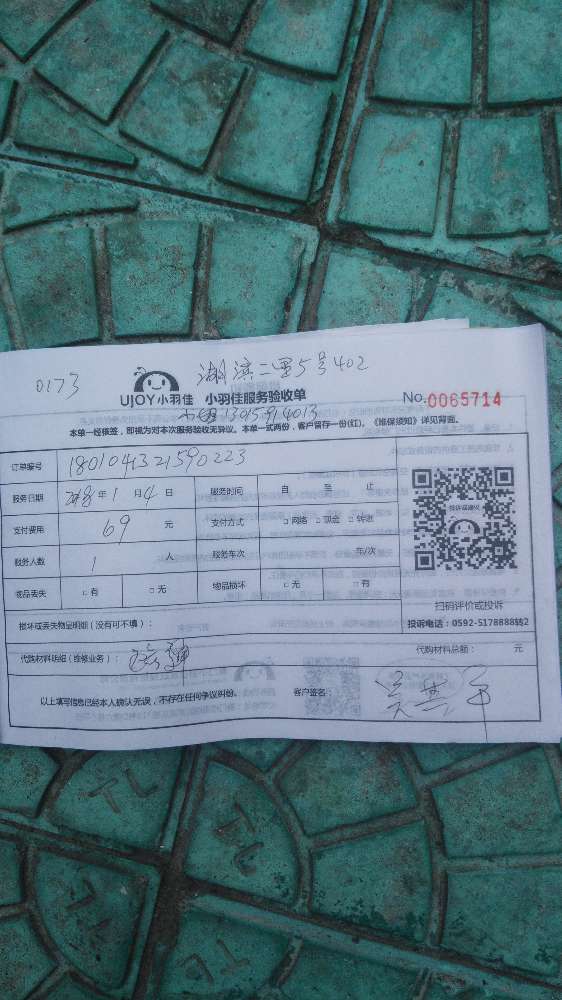 0173
湖滨二里5号402
UJOY小羽佳 小羽佳服务验收单
No.0065714
13015914013
本单一经帐签，即视为对本次服务验收无异议。本单一式两份，客户留存一份(红)。《维保须知》详见背面。
订单编号 180104321590223
服务日期 2018年 1 月 4 日 服务时间 自 至 止
支付费用 69 元 支付方式 □网络 □现金 □转账
服务人数 1 人 服务车次 车/次
投诉或建议
物品丢失 □有 □无 物品损坏 □无 □有
扫码评价或投诉
损坏或丢失物呈明细（没有可不填）：
投诉电话：0592-5178888转2
代购材料明细（维修业务）：
代购材料总额： 元
以上填写信息已经本人确认无误，不存在任何争议纠纷。 客户签名：